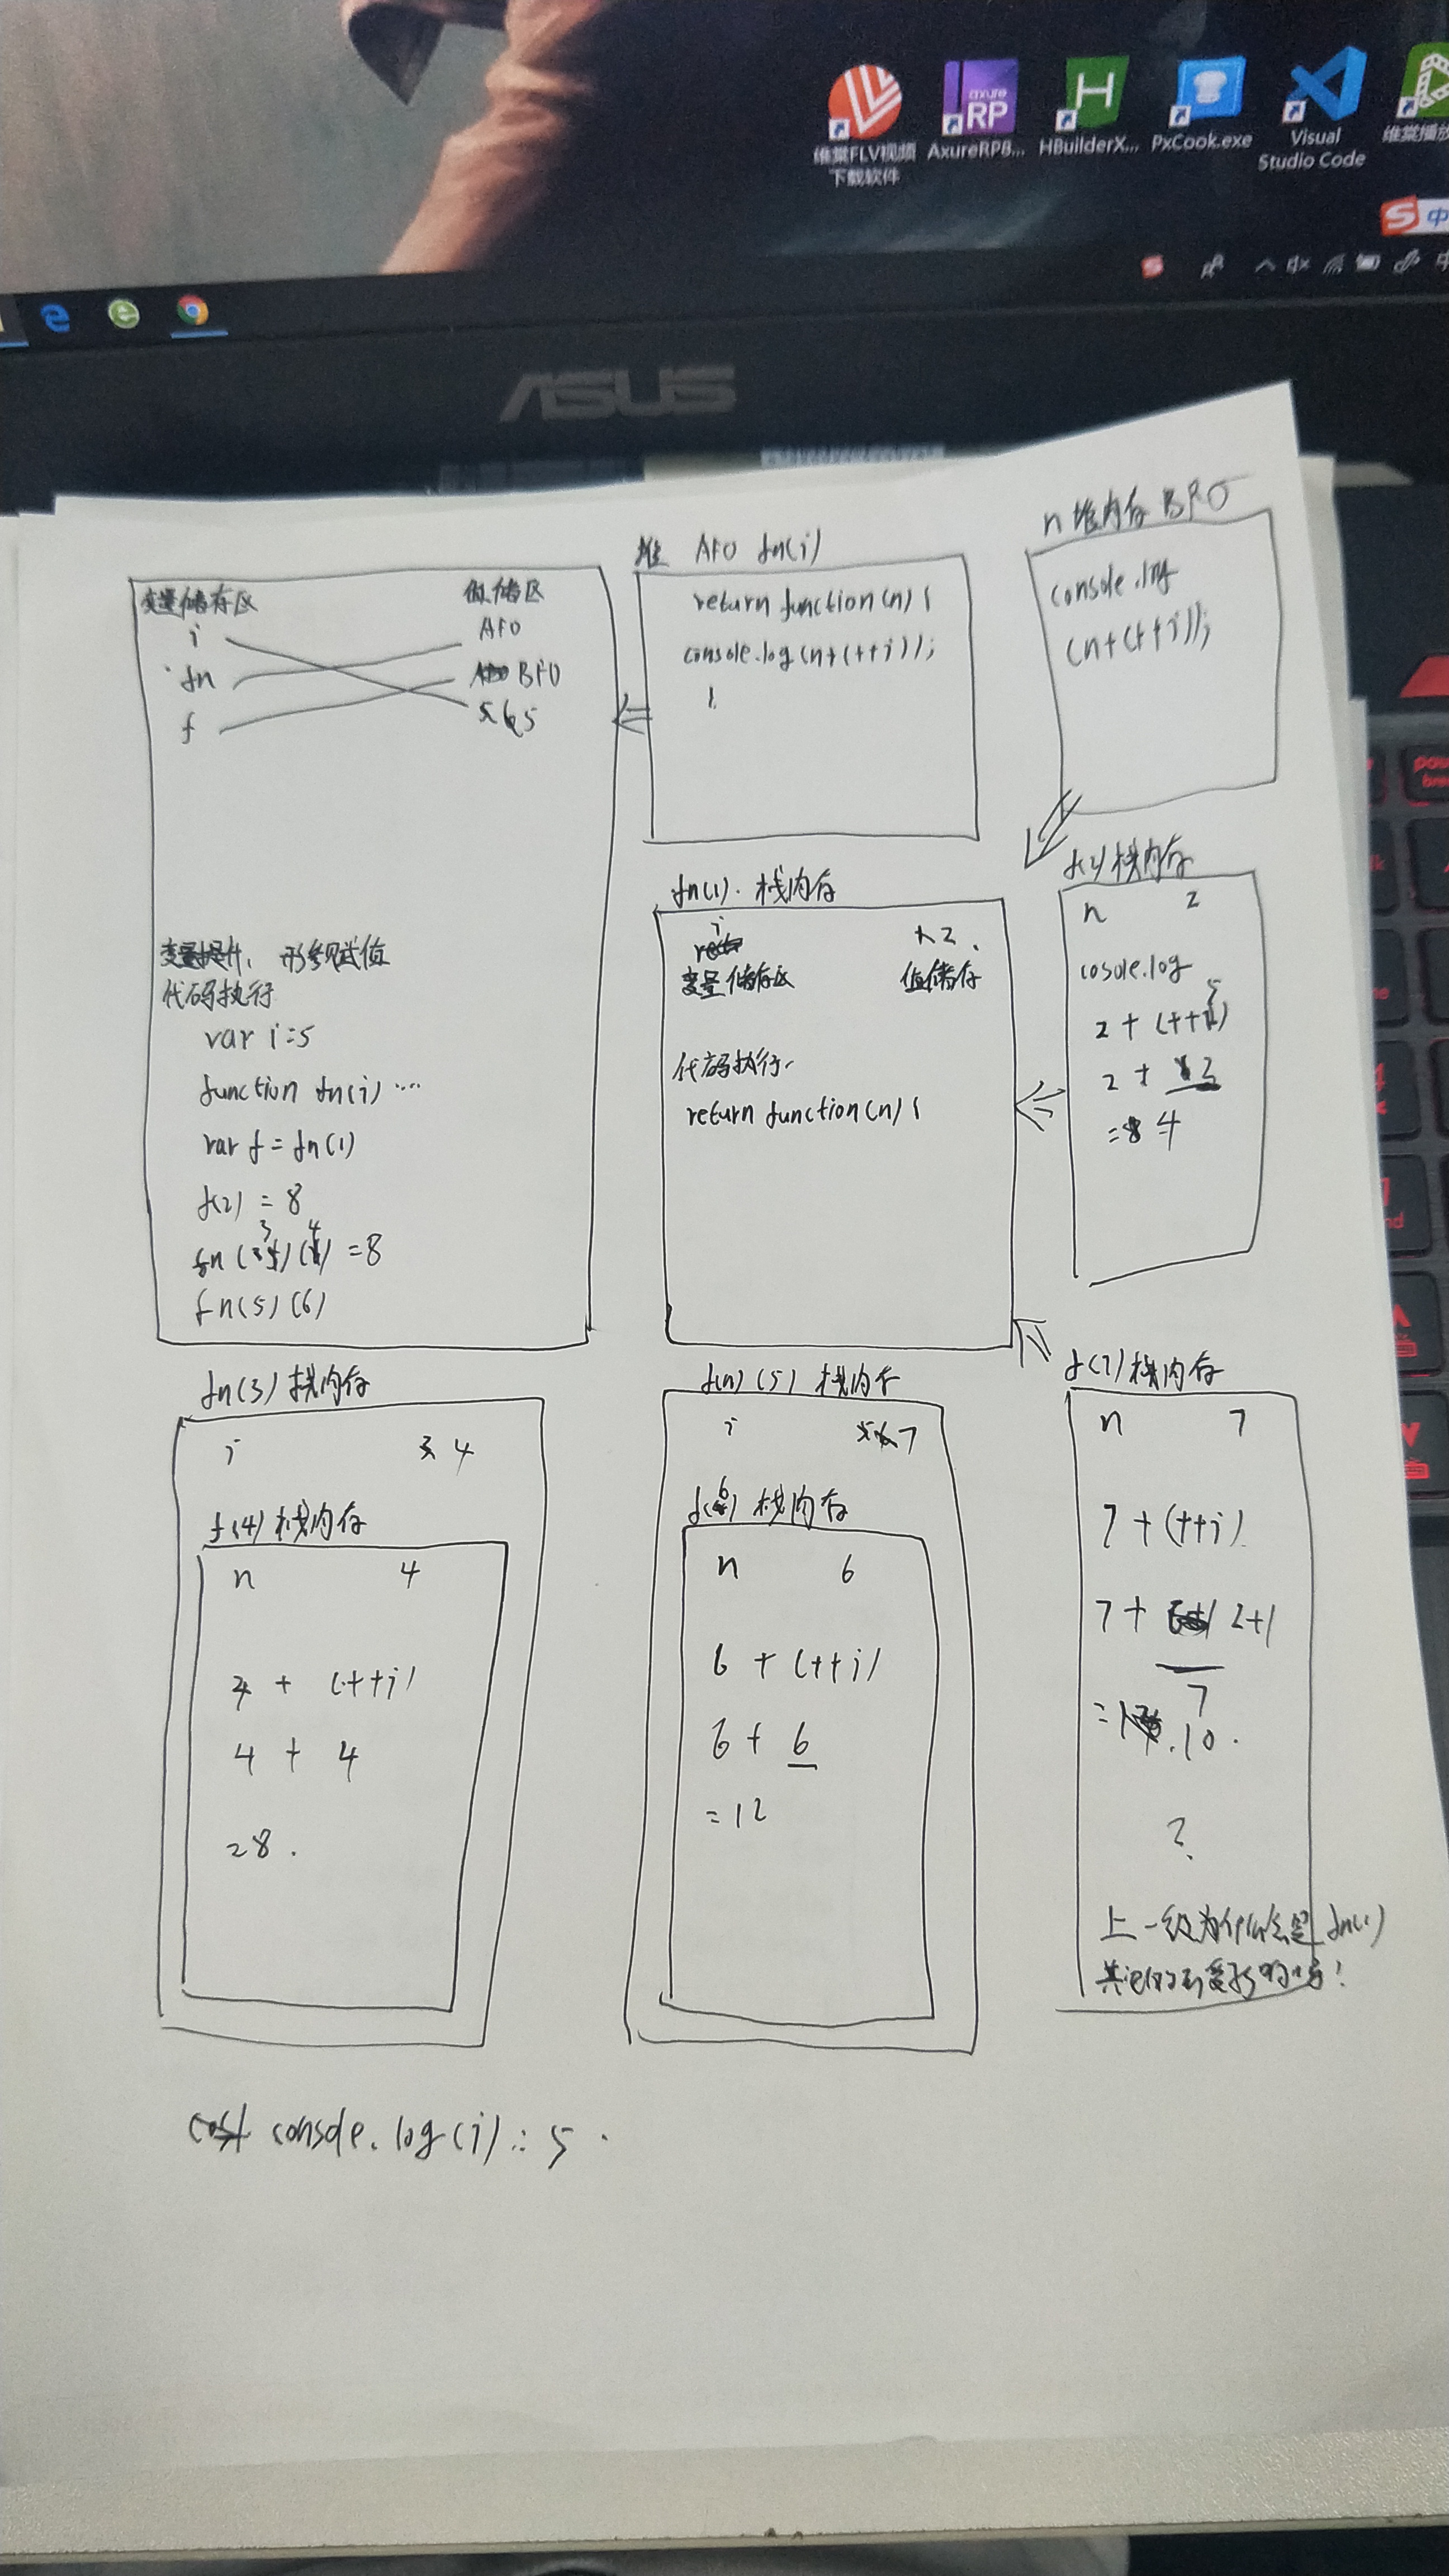 维棠FLV视频
下载软件
AxureRP8...
HBuilderX...
PxCook.exe
Visual
Studio Code
维棠播放
axure
RP
H
S
中
ASUS
变量储存区 值储存区
i AFO
fn BFO
f 5
变量提升、形参赋值
代码执行
var i=5
function fn(i) ....
var f = fn(1)
f(2) = 8
fn(3)(4) =8
fn(5)(6)
堆 AFO fn(i)
return function(n) {
console.log(n+(++i));
}
n 堆内存 BFO
console.log
(n+(++i));
fn(1). 栈内存
i 2
变量储存区 值储存
代码执行.
return function(n) {
f(2)栈内存
n 2
cosole.log
2 + (++i)
2 + 2
= 4
fn(3)栈内存
i 4
f(4)栈内存
n 4
4 + (++i)
4 + 4
=8.
f(n)(5)栈内存
i 7
f(6)栈内存
n 6
6 + (++i)
6 + 6
=12
f(7)栈内存
n 7
7 + (++i)
7 + 2+1
7
= 10.
?
上一级为什么会是 fn(1)
console.log(i) : 5.